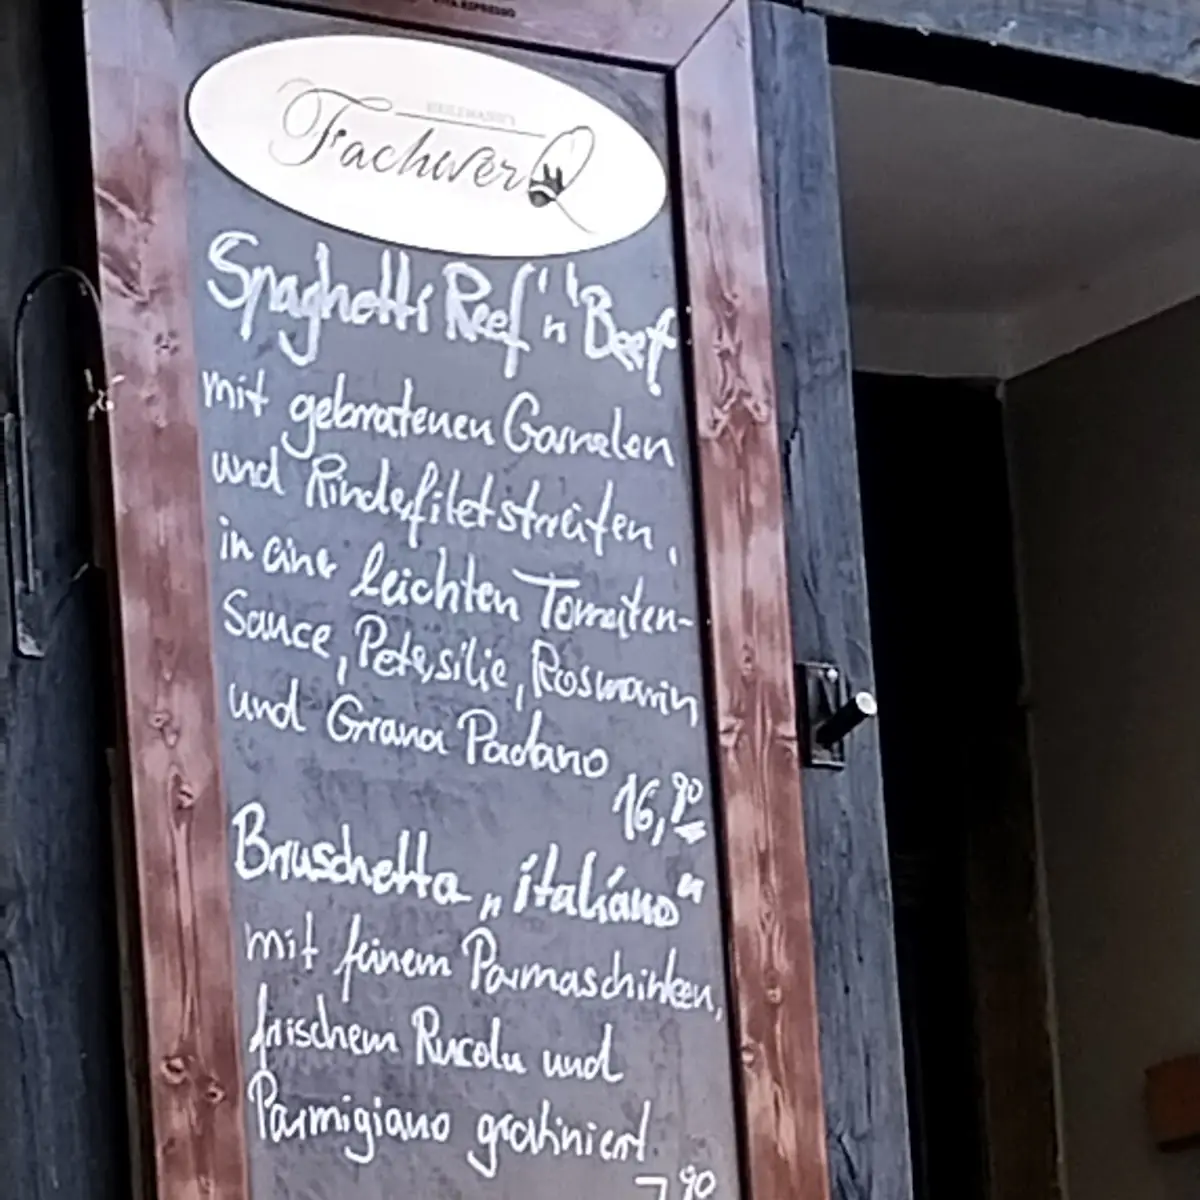 HEILEMANN'S
FachwerQ
Spaghetti Reef 'n' Beef
mit gebratenen Garnelen
und Rinderfiletstreifen,
in einer leichten Tomaten-
Sauce, Petersilie, Rosmarin
und Grana Padano
16,90
Bruschetta „italiano"
mit feinem Parmaschinken,
frischem Rucola und
Parmigiano gratiniert
7,90